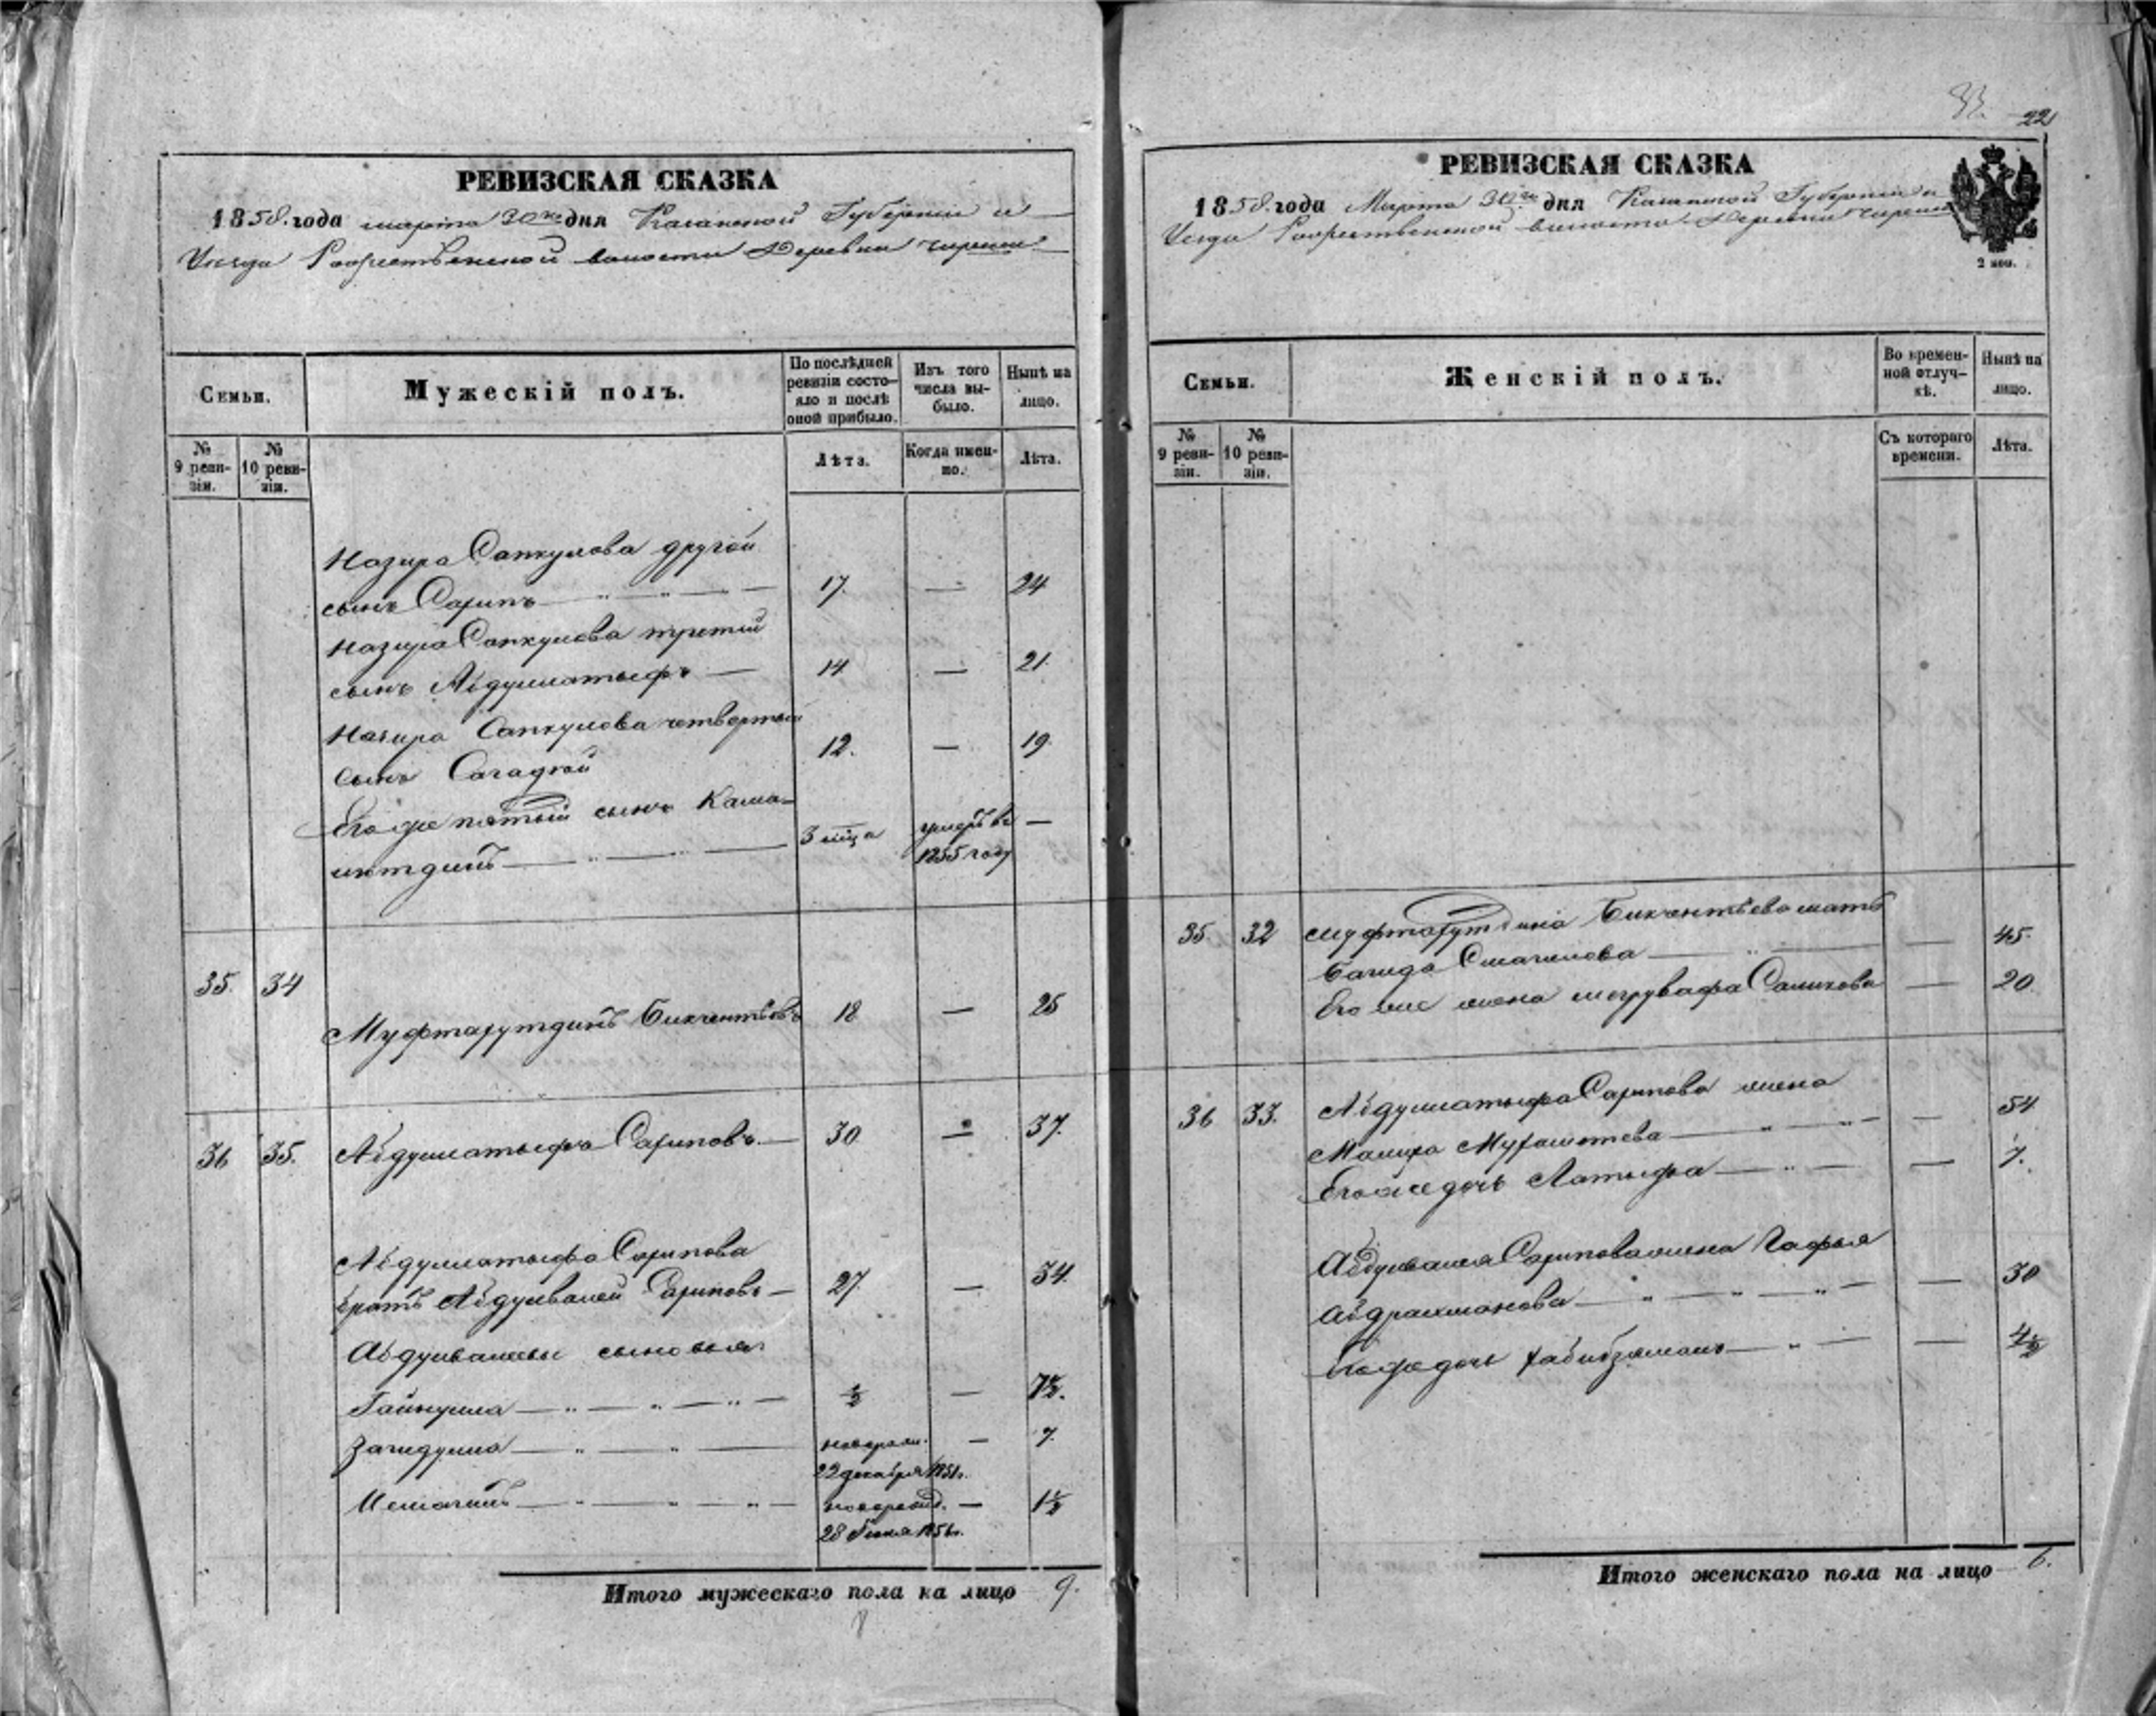 РЕВИЗСКАЯ СКАЗКА
1858. года марта 30го дня Казанской Губерніи и
Уезда волости Деревни
Семьи.
Мужескій полъ.
По послѣдней ревизіи состояло и послѣ оной прибыло.
Изъ того числа выбыло.
Нынѣ на лицо.
№ 9 ревизіи.
№ 10 ревизіи.
Лѣта.
Когда именно.
Лѣта.
Назира Сапкулова другой
сынъ Сарипъ 17. — 24
Назира Сапкулова третій
сынъ Абдуллатыфъ — 14 — 21.
Назира Сапкулова четвертый
сынъ Сагадтъй 12. — 19.
Его же пятый сынъ Кама-
литдинъ 3 мѣца умеръ въ 1855 году —
35. 34
Муфтахутдинъ Бикчентѣевъ 18 — 25
36 35. Абдуллатыфъ Сариповъ 30 — 37.
Абдуллатыфа Сарипова
братъ Абдулвалей Сариповъ — 27. — 34.
Абдулвалеевы сыновья
Гайнулла ½ — 7½.
Загидулла новорожд. 22 декабря 1851г. — 7.
Исмагилъ новорожд. 28 Іюня 1856г. — 1½
Итого мужескаго пола на лицо 9.
8
22
РЕВИЗСКАЯ СКАЗКА
1858. года Марта 30го дня Казанской Губерніи и
Уезда волости Деревни
2 коп.
Семьи.
Женскій полъ.
Во временной отлучкѣ.
Нынѣ на лицо.
№ 9 ревизіи.
№ 10 ревизіи.
Съ котораго времени.
Лѣта.
35 32 Муфтахутдина Бикчентѣева мать
Багида Смагилова — 45.
Его же жена Сапихова — 20
36 33. Абдуллатыфа Сарипова жена
Малиха — 54
Его же дочь Латыфа — 7.
Абдулвалея Сарипова жена Гафья
Абдрахманова — 30
Его же дочь Хабибзямалъ — 4½
Итого женскаго пола на лицо 6.